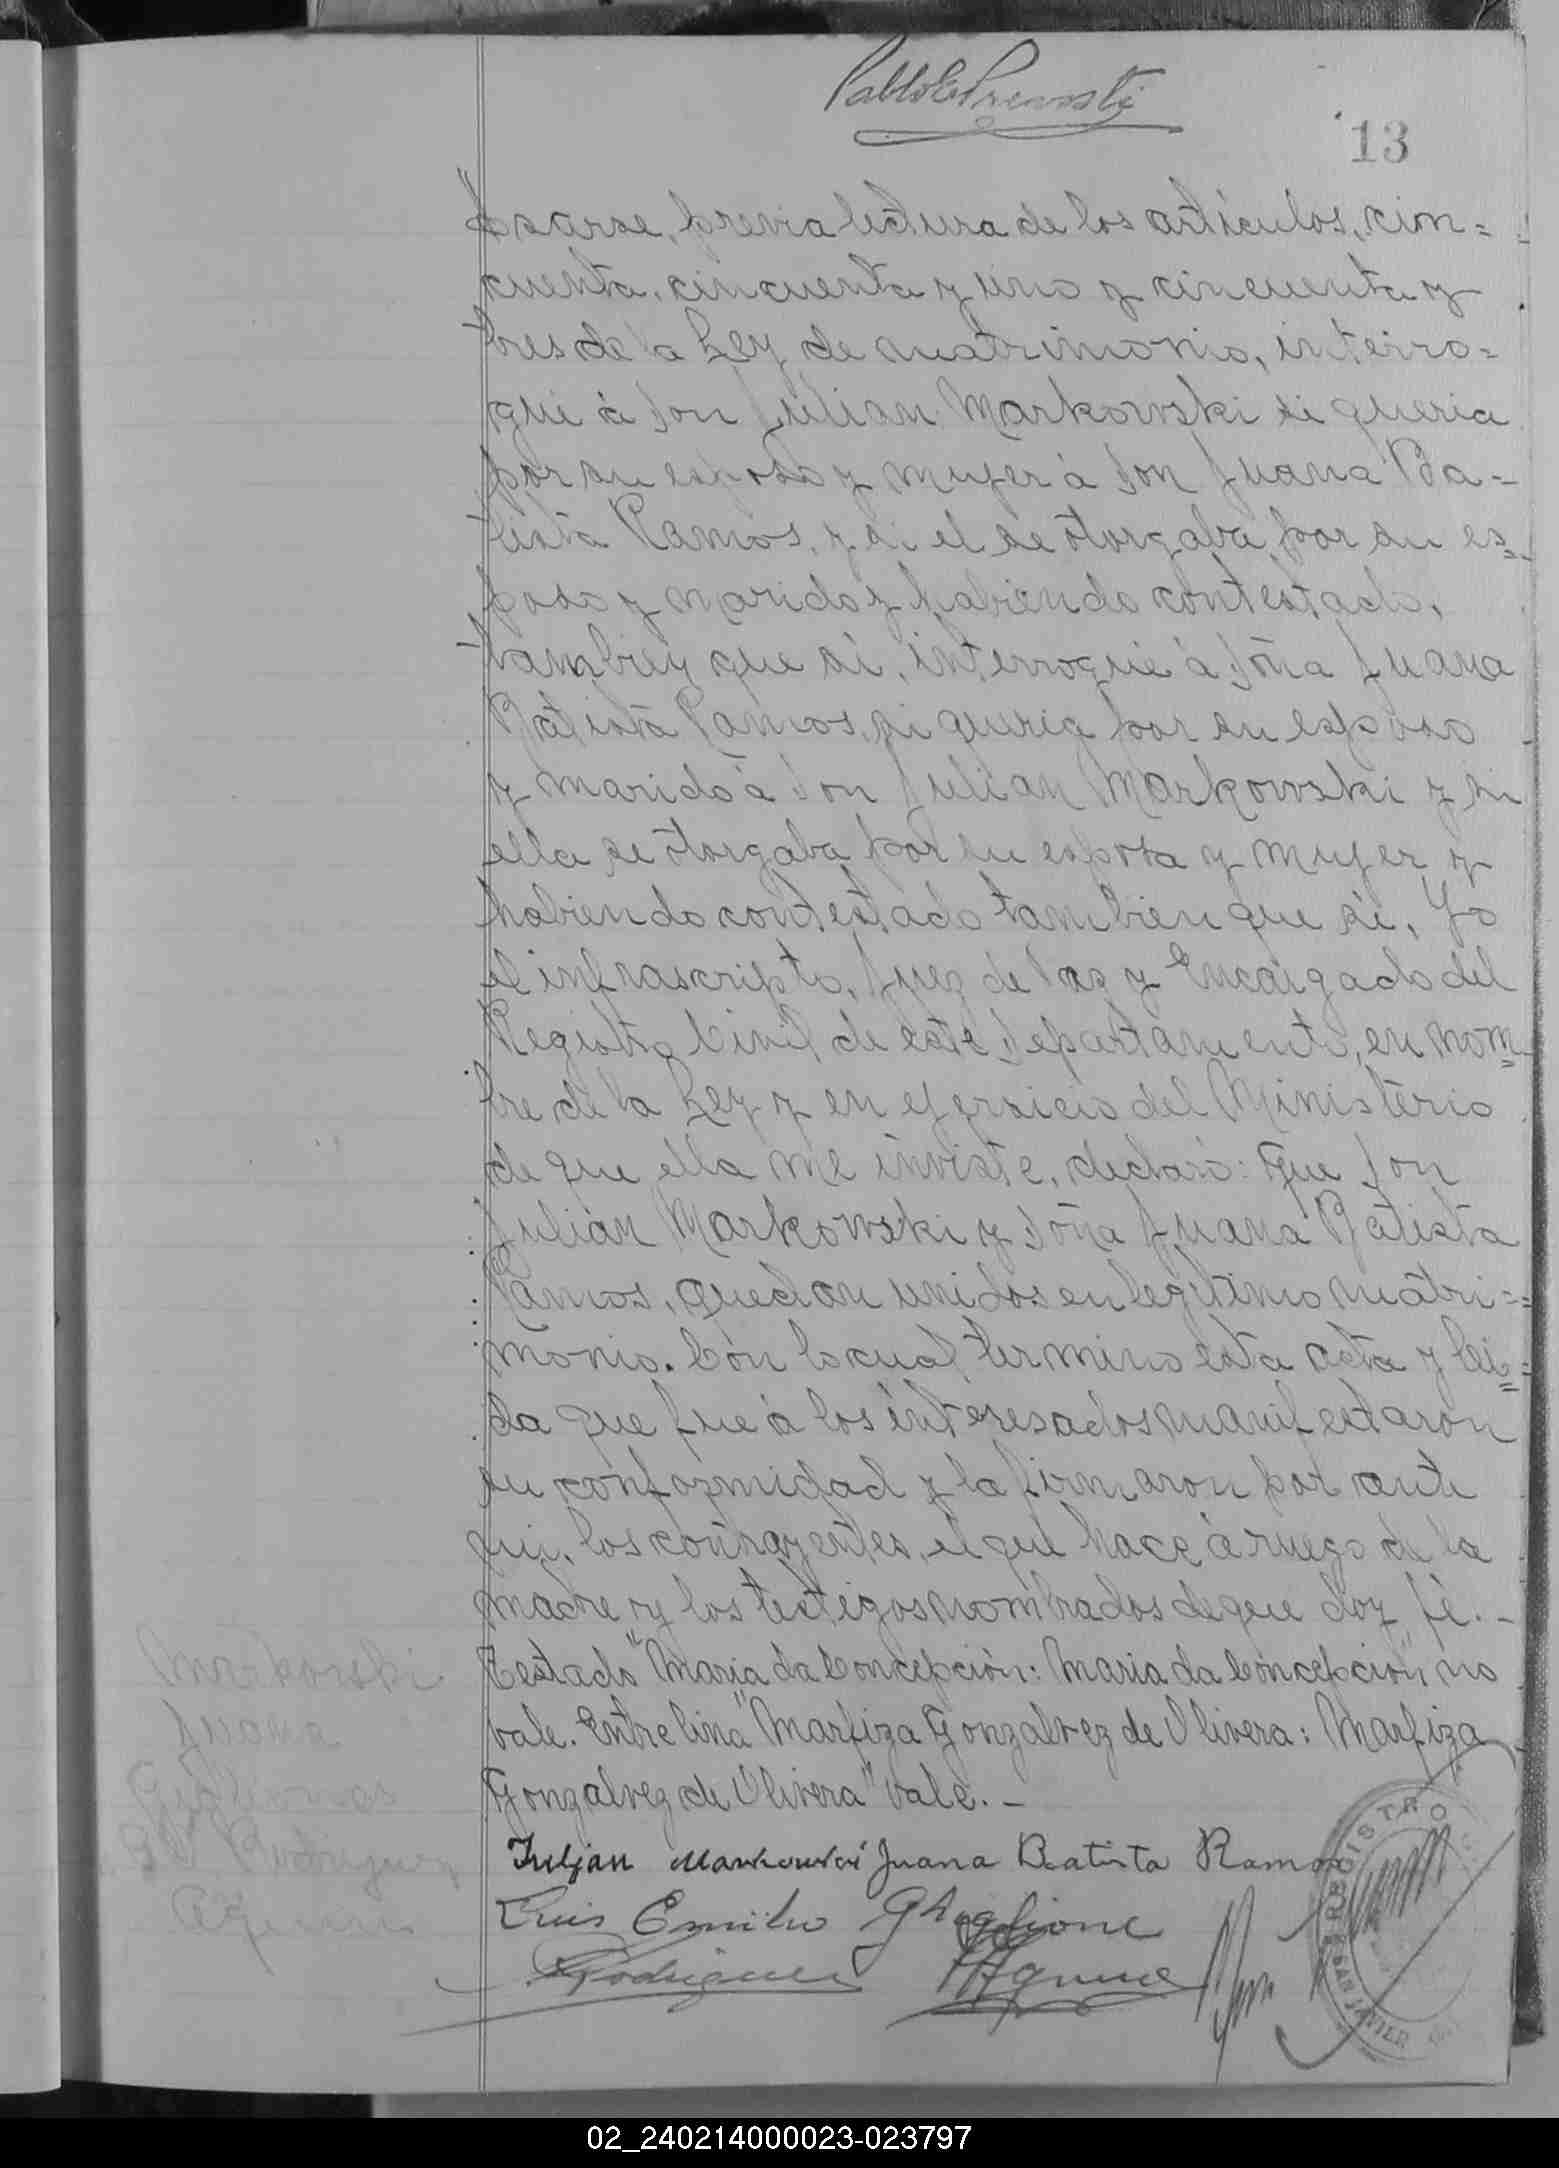 Pablo E. Prevosti
13
sarse, previa lectura de los artículos, cin=
cuenta, cincuenta y uno y cincuenta y
tres de la Ley de matrimonio, interro=
gué á Don Julian Markowski si queria
por su esposa y mujer á Don Juana Ba-
tista Ramos, y si el se otorgaba por su es=
poso y marido y habiendo contestado,
tambien que si, interrogué á Doña Juana
Batista Ramos, si queria por su esposo
y marido á Don Julian Markowski y si
ella se otorgaba por su esposa y mujer y
habiendo contestado tambien que sí, Yo
el infrascripto, Juez de Paz y Encargado del
Registro Civil de este Departamento, en nom=
bre de la Ley y en ejersicio del Ministerio
de que ella me inviste, declaro: Que Don
Julian Markowski y Doña Juana Batista
Ramos, quedan unidos en legitimo matri=
monio. Con lo cual termino esta acta y lei=
da que fue á los interesados manifestaron
su conformidad y la firmaron por ante
mi, los contrayentes, el que hace á ruego de la
madre y los testigos nombrados de que doy fé.-
Testado "Maria da Concepción: Maria da Concepción", no
vale. Entrelina "Marfiza Gonzalvez de Olivera: Marfiza
Gonzalvez de Olivera" vale.-
Markowski
Juana
Rodriguez
Juljan Markowski Juana Batista Ramos
Luis Emilio Ghiglione
Rodriguez
REGISTRO
SAN JAVIER
02_240214000023-023797